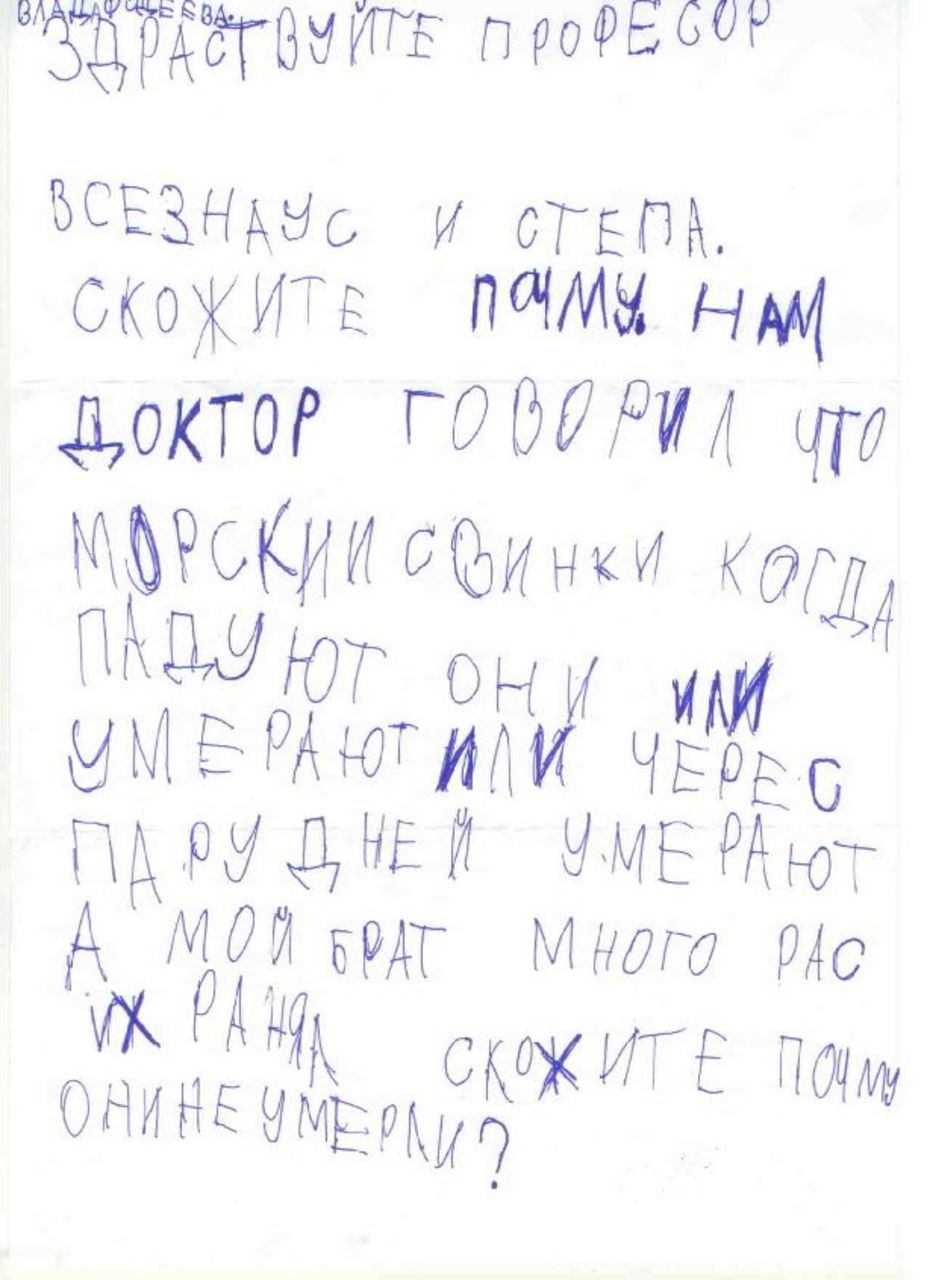 ВЛАДА ФАДЕЕВА.
ЗДРАСТВУЙТЕ ПРОФЕСОР
ВСЕЗНАУС И СТЕПА.
СКОЖИТЕ ПОЧМУ. НАМ
ДОКТОР ГОВОРИЛ ЧТО
МОРСКИИ СВИНКИ КОГДА
ПАДУЮТ ОНИ ИЛИ
УМЕРАЮТ ИЛИ ЧЕРЕС
ПАРУ ДНЕЙ УМЕРАЮТ
А МОЙ БРАТ МНОГО РАС
ИХ РАНЯЛ СКОЖИТЕ ПОЧМУ
ОНИ НЕ УМЕРЛИ?